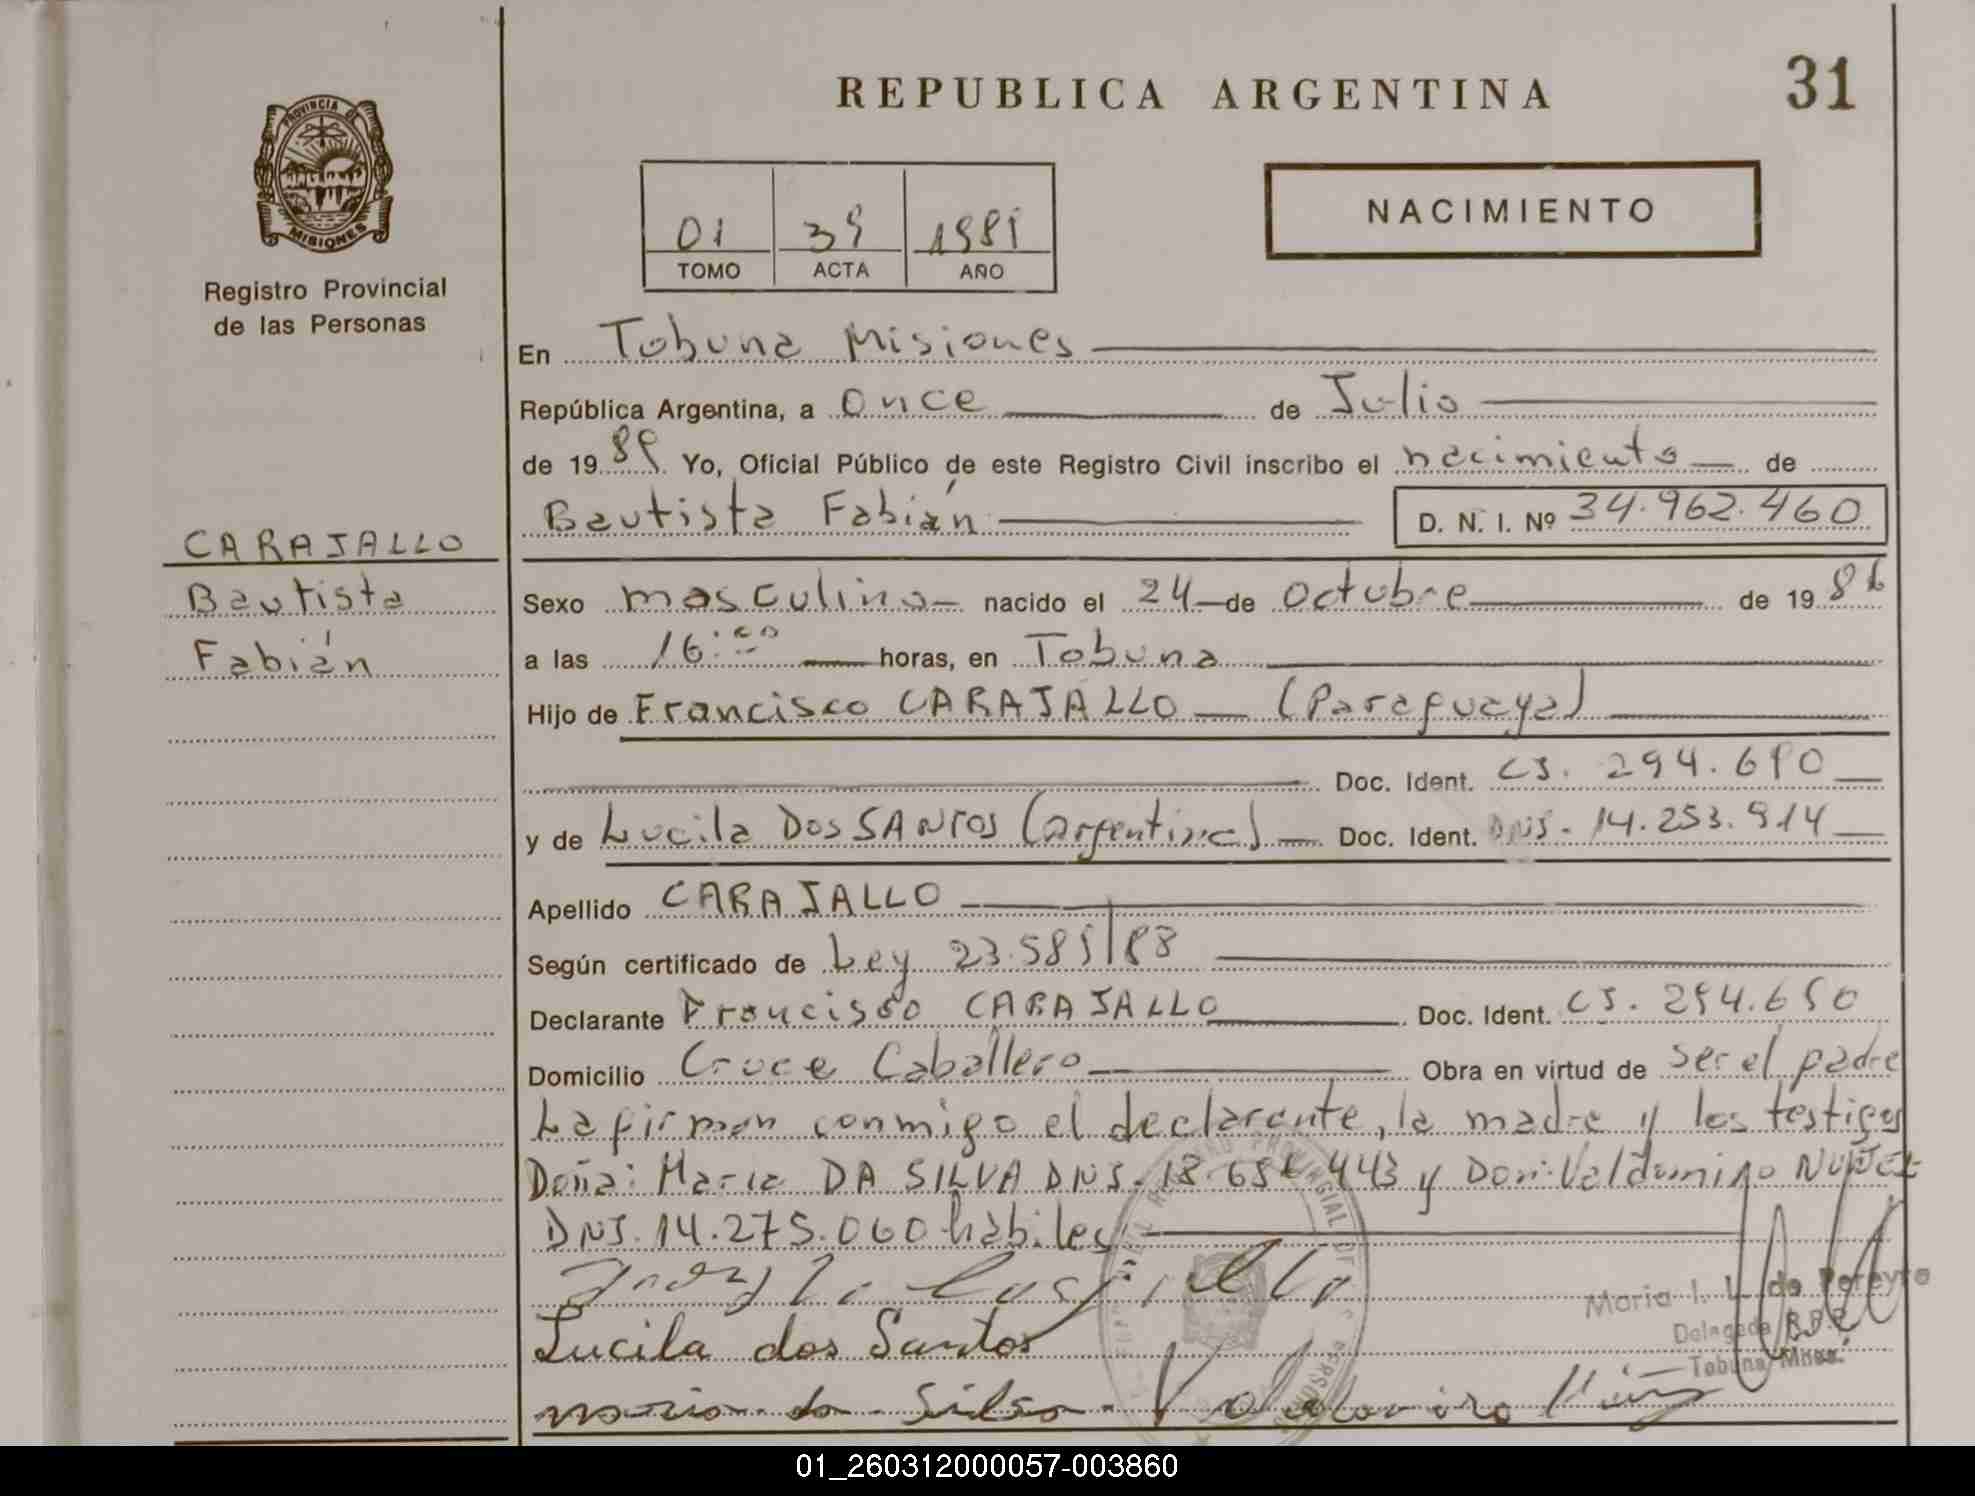 REPUBLICA ARGENTINA
31
PROVINCIA DE
MISIONES
Registro Provincial
de las Personas
01 39 1989
TOMO ACTA AÑO
NACIMIENTO
En Tobuna Misiones
República Argentina, a once de Julio
de 1989. Yo, Oficial Público de este Registro Civil inscribo el nacimiento de
Bautista Fabián D. N. I. Nº 34.962.460
CARAJALLO
Bautista
Fabián
Sexo masculino nacido el 24 de Octubre de 1986
a las 16:00 horas, en Tobuna
Hijo de Francisco CARAJALLO (Paraguaya)
Doc. Ident. CI. 294.690
y de Lucila DOS SANTOS (argentina) Doc. Ident. DNI. 14.253.914
Apellido CARAJALLO
Según certificado de Ley 23.585/88
Declarante Francisco CARAJALLO Doc. Ident. CI. 294.690
Domicilio Cruce Caballero Obra en virtud de ser el padre
La firman conmigo el declarante, la madre y los testigos
Doña: Maria DA SILVA DNI. 18. 443 y Don: Valdumiro NUÑEZ
DNI. 14.275.060 habiles
Lucila dos Santos
maria da Silva Valdomiro
Maria I. L. de Pereyra
Delegada R.P.P.
Tobuna Mnes.
01_260312000057-003860